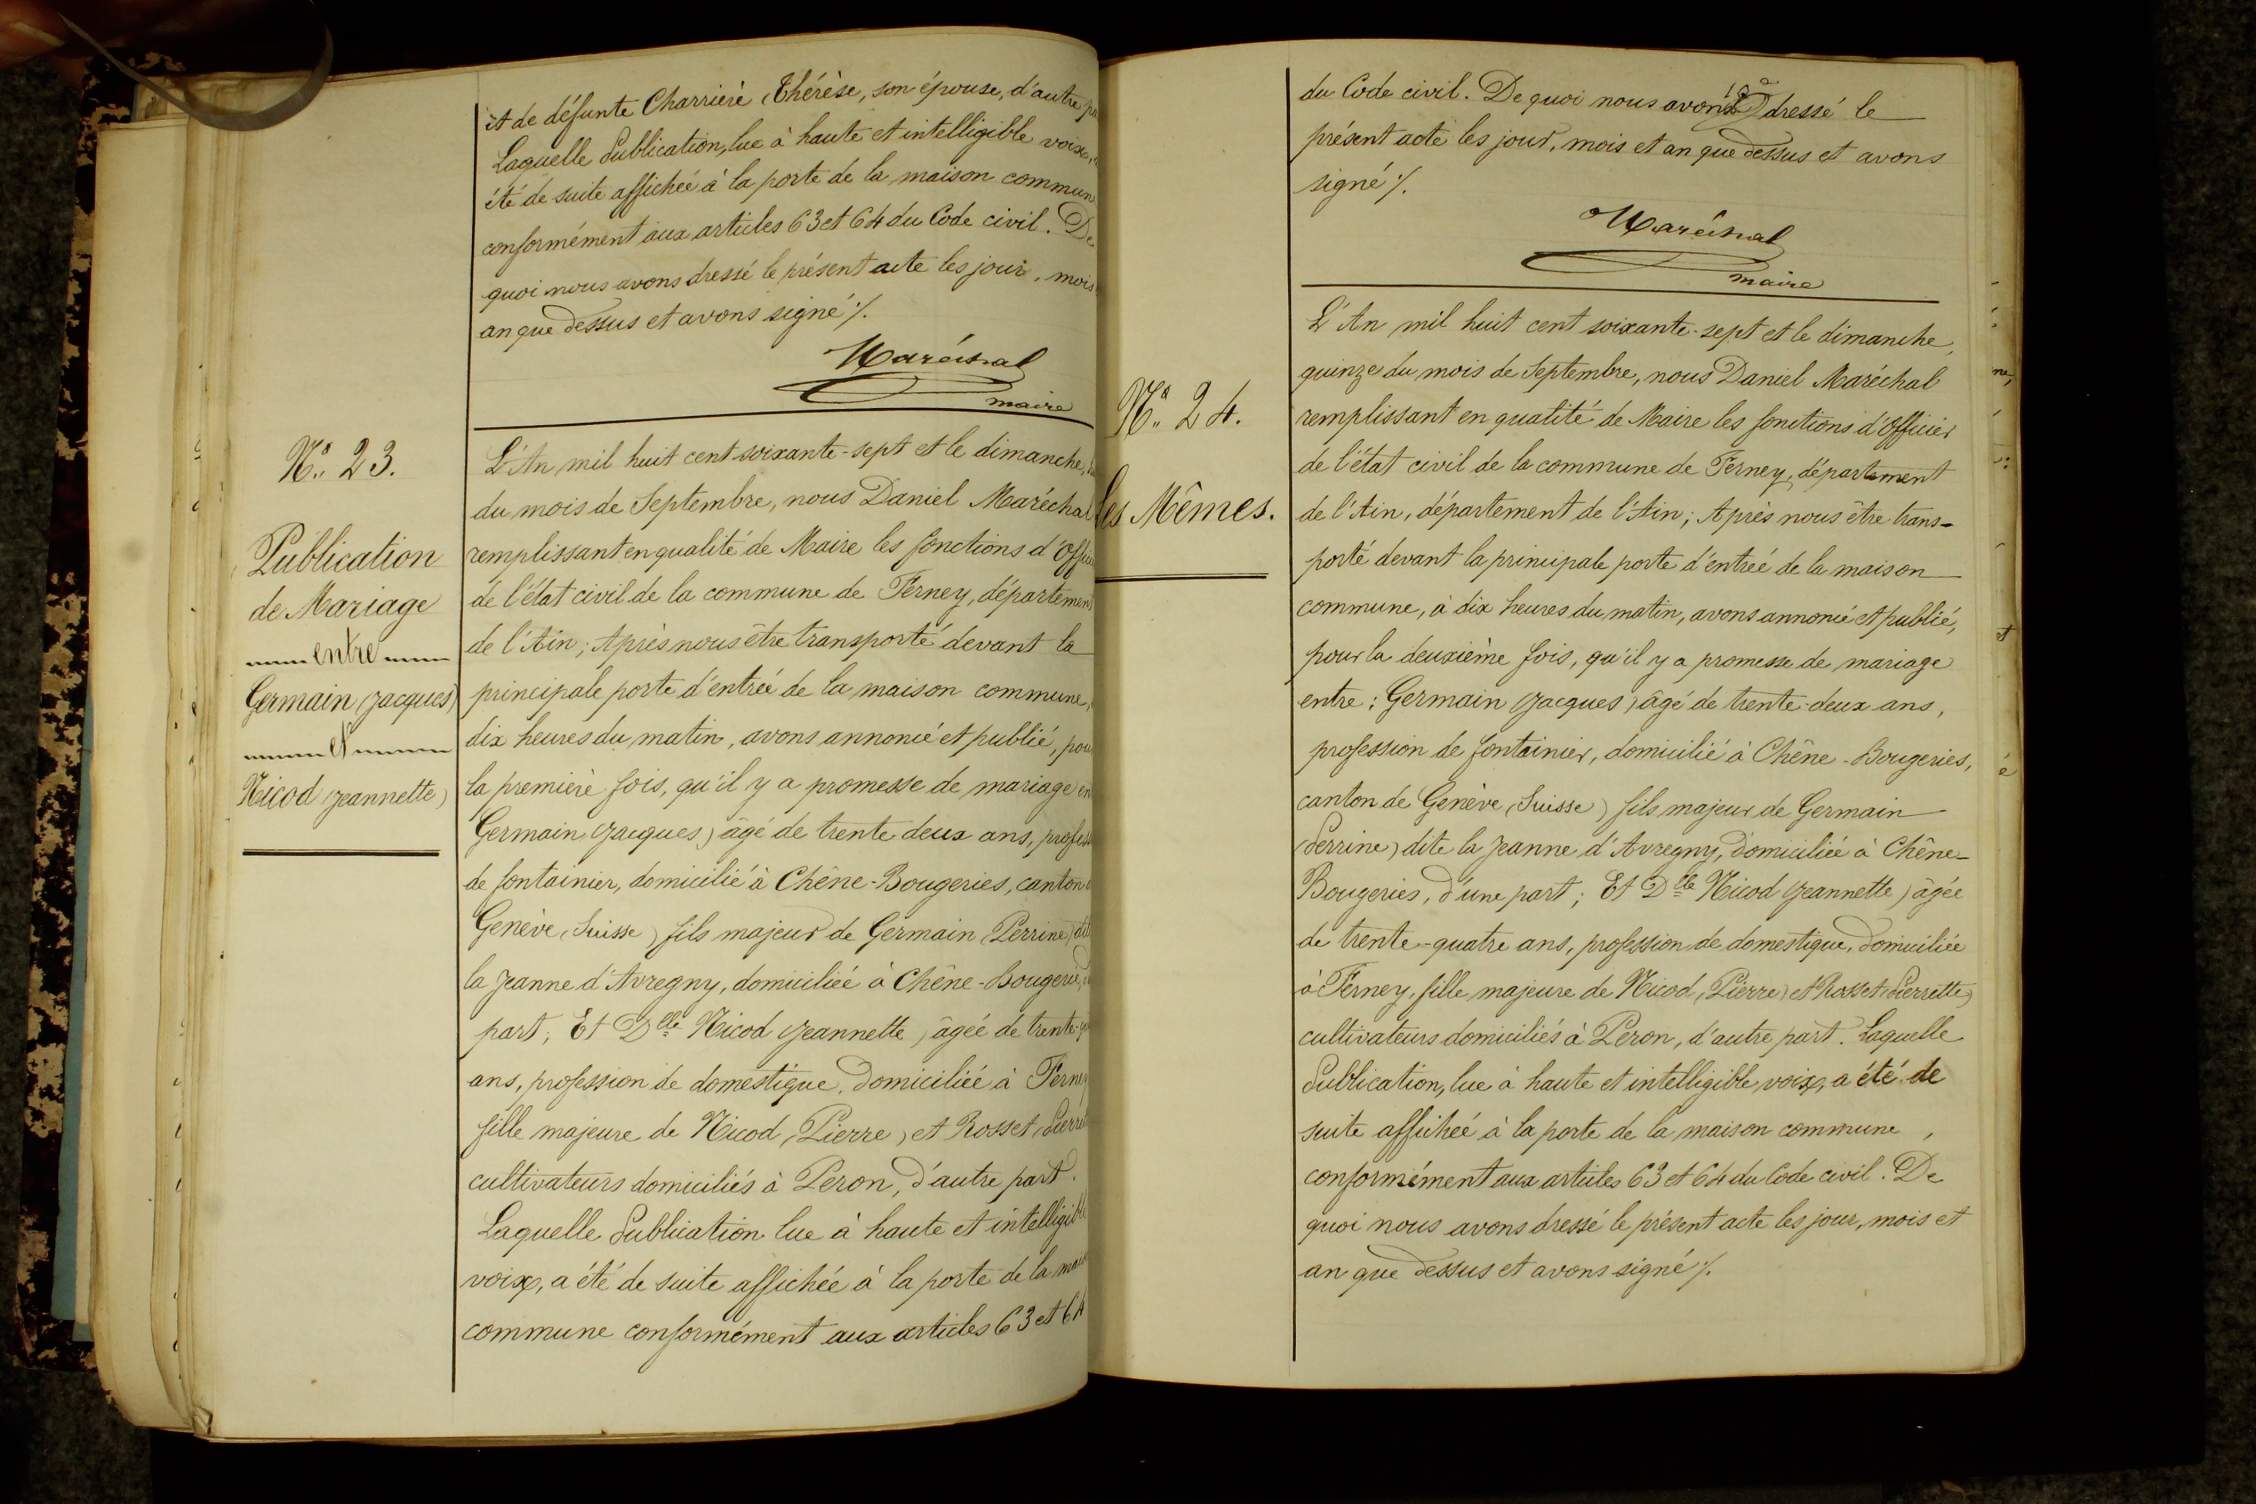 et de défunte Charrière (Thérèse, son épouse, d'autre
Laquelle Publication, lue à haute et intelligible voix,
été de suite affichée à la porte de la maison commun
conformément aux articles 63 et 64 du Code civil. De
quoi nous avons dressé le présent acte les jour, mois
an que dessus et avons signé ∕.
Maréchal
maire
N.° 23.
Publication
de Mariage
entre
Germain (Jacques)
et
Nicod (Jeannette)
L'An mil huit cent soixante-sept et le dimanche,
du mois de Septembre, nous Daniel Maréchal
remplissant en qualité de Maire les fonctions d'Offici
de l'état civil de la commune de Ferney, département
de l'Ain; Après nous être transporté devant la
principale porte d'entrée de la maison commune,
dix heures du matin, avons annoncé et publié, pou
la première fois, qu'il y a promesse de mariage en
Germain (Jacques) âgé de trente deux ans, profess
de fontainier, domicilié à Chêne-Bougeries, canton
Genève (Suisse) fils majeur de Germain (Perrine) dit
la Jeanne d'Avregny, domiciliée à Chêne-Bougerie,
part; Et Dlle Nicod (Jeannette) âgée de trente-
ans, profession de domestique, domiciliée à Ferney
fille majeure de Nicod (Pierre) et Rosset (Pierret
cultivateurs domiciliés à Peron, d'autre part.
Laquelle Publication lue à haute et intelligible
voix, a été de suite affichée à la porte de la mais
commune conformément aux articles 63 et 64
du Code civil. De quoi nous avons dressé le
présent acte les jour, mois et an que dessus et avons
signé ∕.
Maréchal
maire
N.° 24.
Les Mêmes.
L'An mil huit cent soixante-sept et le dimanche,
quinze du mois de Septembre, nous Daniel Maréchal
remplissant en qualité de Maire les fonctions d'Officier
de l'état civil de la commune de Ferney, département
de l'Ain, département de l'Ain; Après nous être trans-
porté devant la principale porte d'entrée de la maison
commune, à dix heures du matin, avons annoncé et publié,
pour la deuxième fois, qu'il y a promesse de mariage
entre: Germain (Jacques) âgé de trente-deux ans,
profession de fontainier, domicilié à Chêne-Bougeries,
canton de Genève (Suisse) fils majeur de Germain
(Perrine) dite la Jeanne d'Avregny, domiciliée à Chêne-
Bougeries, d'une part; Et Dlle Nicod (Jeannette) âgée
de trente-quatre ans, profession de domestique, domiciliée
à Ferney, fille majeure de Nicod (Pierre) et Rosset (Pierrette)
cultivateurs domiciliés à Peron, d'autre part. Laquelle
Publication, lue à haute et intelligible voix, a été de
suite affichée à la porte de la maison commune,
conformément aux articles 63 et 64 du Code civil. De
quoi nous avons dressé le présent acte les jour, mois et
an que dessus et avons signé ∕.